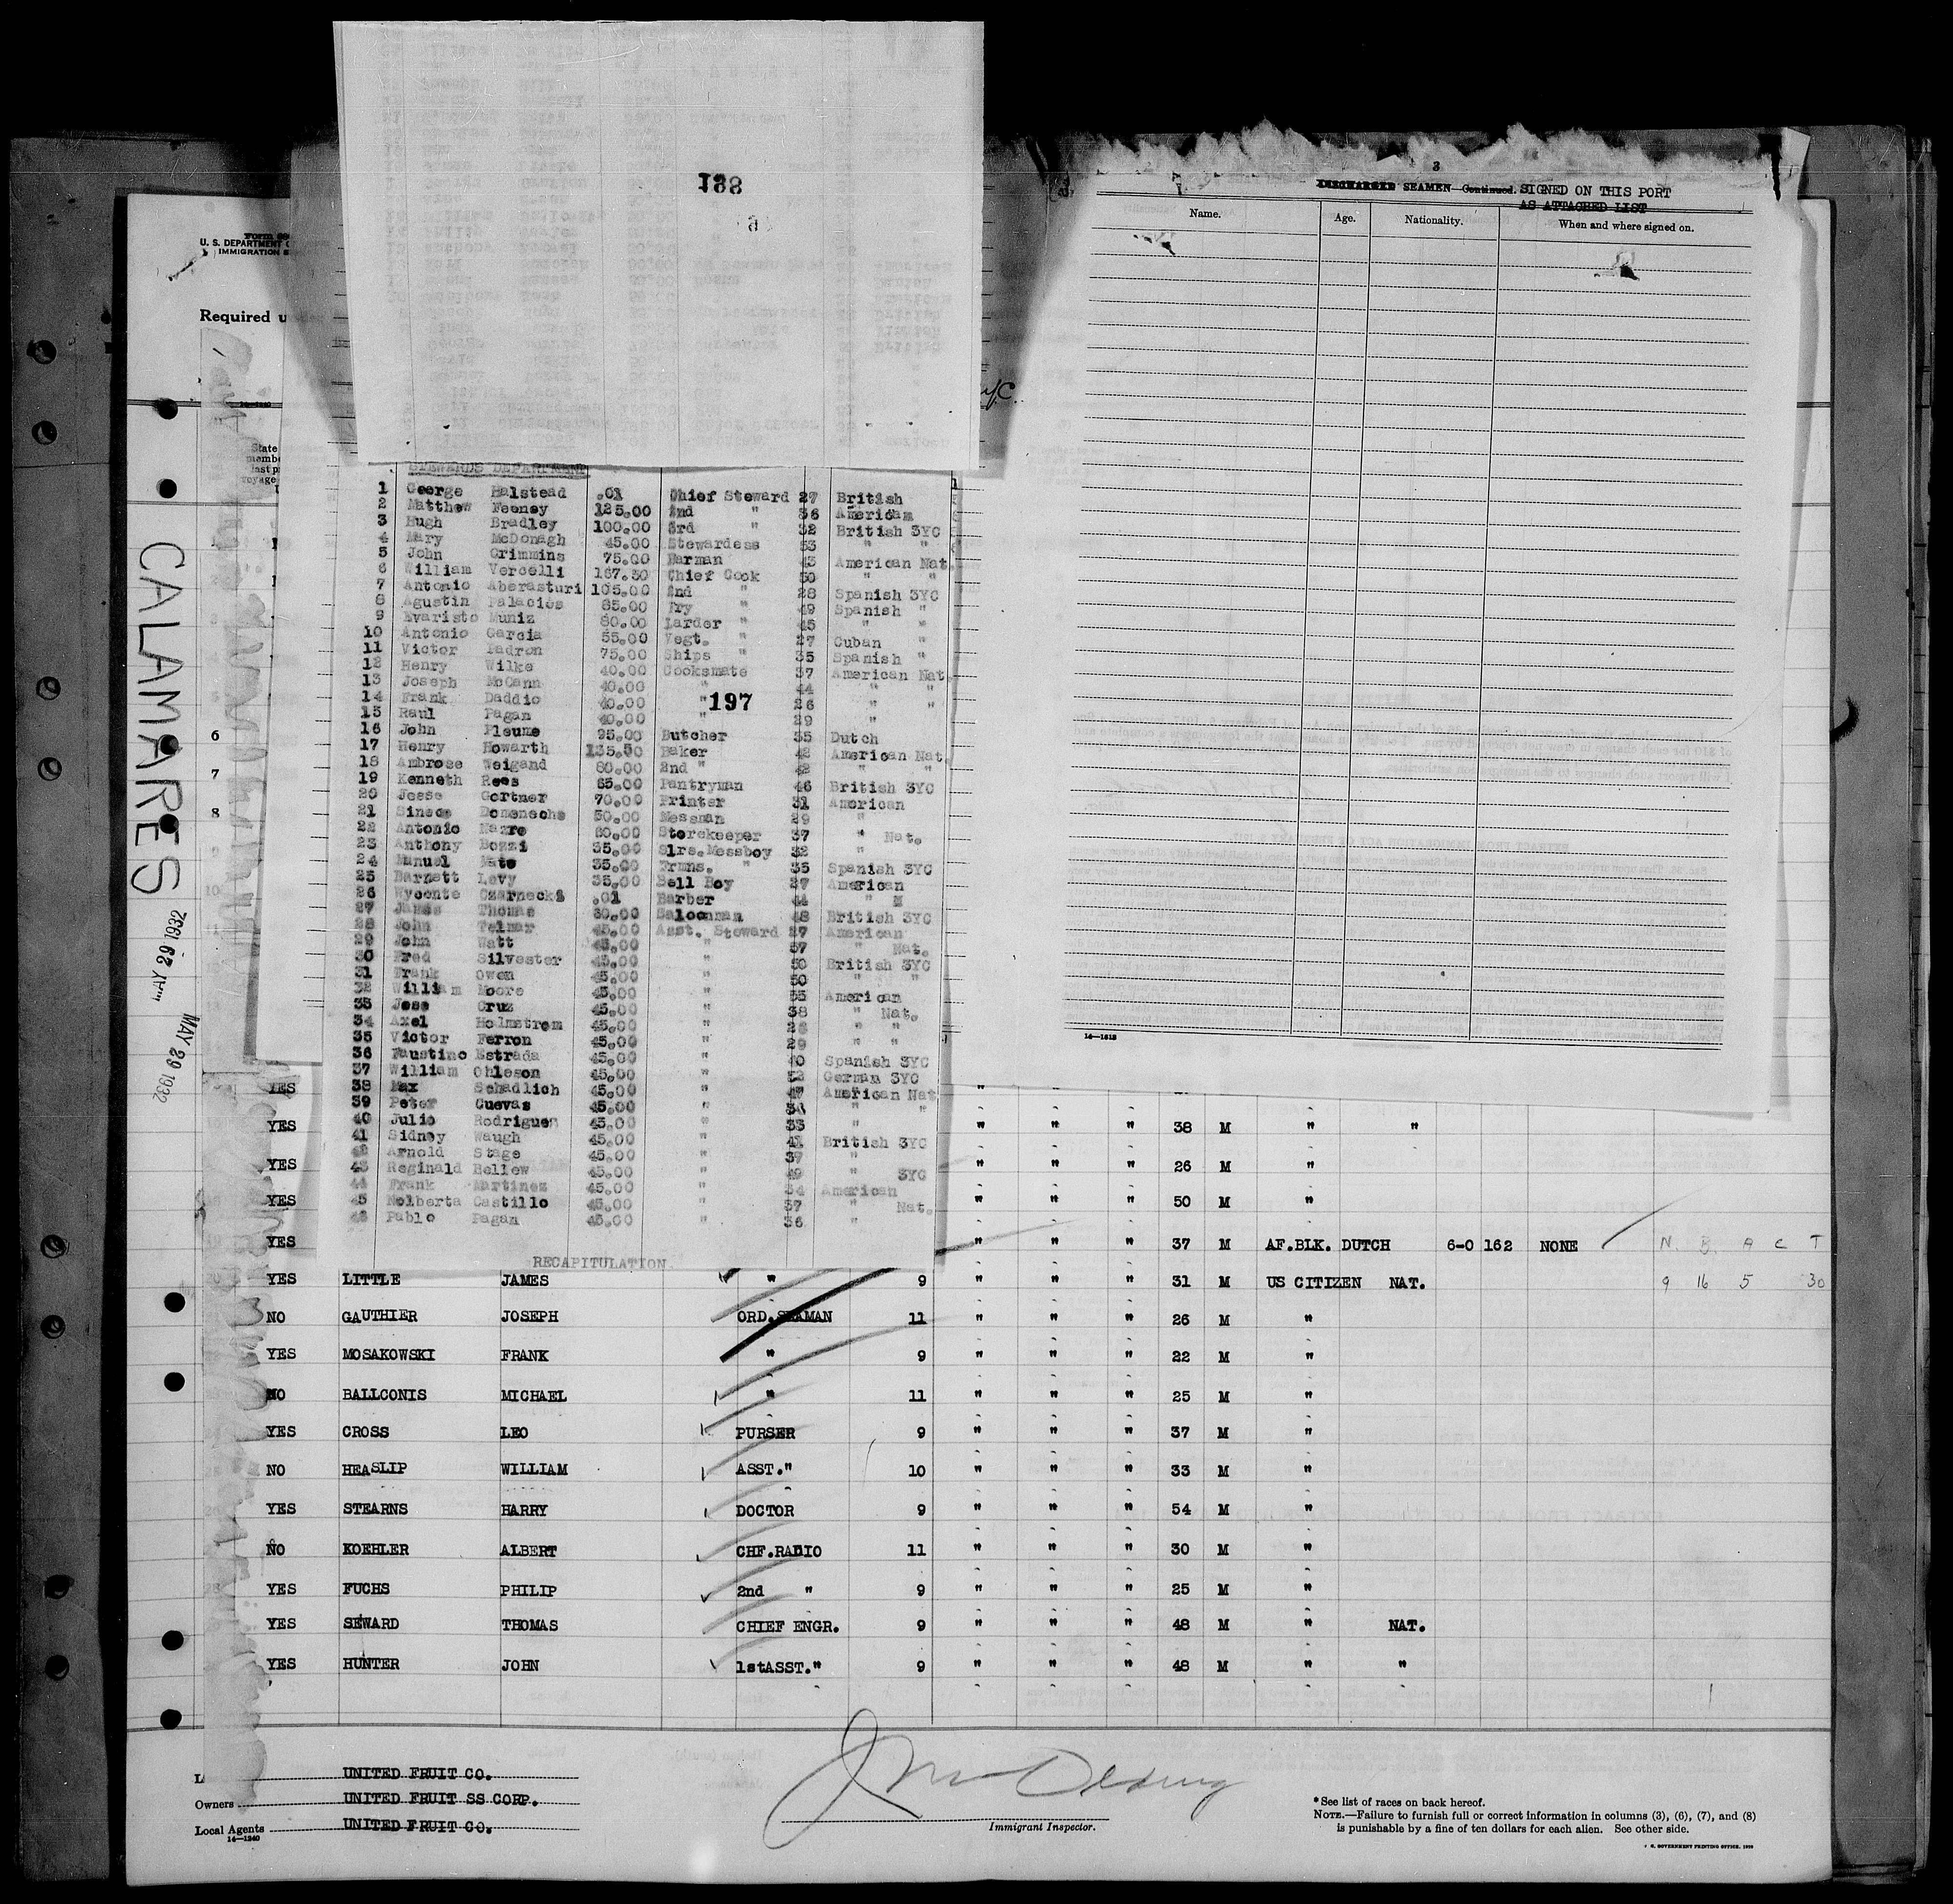 138
3
SEAMEN—Continued. SIGNED ON THIS PORT
AS ATTACHED LIST
Name. Age. Nationality. When and where signed on.
U. S. DEPARTMENT
IMMIGRATION
Required
14—1240
State
memb
last p
voyage
CALAMARES
MAY 29 1932
MAY 29 1932
STEWARDS DEPARTMENT
1 George Halstead .01 Chief Steward 27 British
2 Matthew Feeney 125.00 2nd " 36 American
3 Hugh Bradley 100.00 3rd " 32 British 3YC
4 Mary McDonagh 45.00 Stewardess 53 " "
5 John Crimmins 75.00 Barman 43 American Nat.
6 William Vercelli 167.50 Chief Cook 50 " "
7 Antonio Aberasturi 105.00 2nd " 28 Spanish 3YC
8 Agustin Palacios 85.00 Fry " 49 Spanish "
9 Evaristo Muniz 80.00 Larder " 45 " "
10 Antonio Garcia 55.00 Vegt. " 27 Cuban "
11 Victor Padron 75.00 Ships " 35 Spanish "
12 Henry Wilke 40.00 Cooksmate 37 American Nat
13 Joseph McCann 40.00 " 44 " "
14 Frank Daddio 40.00 " 26 " "
197
15 Raul Pagan 40.00 " 29 "
16 John Pleune 95.00 Butcher 35 Dutch
17 Henry Howarth 135.50 Baker 42 American Nat.
18 Ambrose Weigand 80.00 2nd " 42 " "
19 Kenneth Rees 65.00 Pantryman 46 British 3YC
20 Jesse Gortner 70.00 Printer 31 American
21 Domenechs 50.00 Messman 29 "
22 Antonio Nazro 60.00 Storekeeper 37 " Nat.
23 Anthony Bozzi 35.00 Slrs.Messboy 32 "
24 Manuel Mato 35.00 Frmns. " 35 Spanish 3YC
25 Barnett Levy 35.00 Bell Boy 27 American
26 Wycente Czarnecki .01 Barber 44 "
27 James Thomas 30.00 Saloonman 48 British 3YC
28 John Telmar 45.00 Asst. Steward 27 American
29 John Watt 45.00 " 37 " Nat.
30 Fred Silvester 45.00 " 50 British 3YC
31 Frank Owen 45.00 " 50 " "
32 William Moore 45.00 " 35 American
33 Jose Cruz 45.00 " 38 " Nat.
34 Axel Holmstrom 45.00 " 26 " "
35 Victor Ferron 45.00 " 29 " "
36 Faustino Estrada 45.00 " 40 Spanish 3YC
37 William Ohleson 45.00 " German 3YC
38 Max Schadlich 45.00 " 47 American Nat
39 Peter Cuevas 45.00 " " "
40 Julio Rodriguez 45.00 " 33 "
41 Sidney Waugh 45.00 " 41 British 3YC
42 Arnold Stage 45.00 " 37 "
43 Reginald Bellew 45.00 " 49 " 3YC
44 Frank Martinez 45.00 " 34 American
45 Nolberta Castillo 45.00 " 37 " Nat.
46 Pablo Pagan 45.00 " 36 "
RECAPITULATION
14—1613
6
7
8
YES
YES " " " 38 M " "
YES " " " 26 M "
YES " " " 50 M "
YES " " " 37 M AF.BLK. DUTCH 6-0 162 NONE N. B. A C T
YES LITTLE JAMES " 9 " " " 31 M US CITIZEN NAT. 9 16 5 30
NO GAUTHIER JOSEPH ORD.SEAMAN 11 " " " 26 M "
YES MOSAKOWSKI FRANK " 9 " " " 22 M "
NO BALLCONIS MICHAEL " 11 " " " 25 M "
YES CROSS LEO PURSER 9 " " " 37 M "
NO HEASLIP WILLIAM ASST." 10 " " " 33 M "
YES STEARNS HARRY DOCTOR 9 " " " 54 M "
NO KOEHLER ALBERT CHF.RADIO 11 " " " 30 M "
YES FUCHS PHILIP 2nd " 9 " " " 25 M "
YES SEWARD THOMAS CHIEF ENGR. 9 " " " 48 M " NAT.
YES HUNTER JOHN 1stASST." 9 " " " 48 M " "
UNITED FRUIT CO.
Owners UNITED FRUIT SS CORP.
Local Agents UNITED FRUIT CO.
14—1240
Immigrant Inspector.
*See list of races on back hereof.
NOTE.—Failure to furnish full or correct information in columns (3), (6), (7), and (8)
is punishable by a fine of ten dollars for each alien. See other side.
U. S. GOVERNMENT PRINTING OFFICE. 1929